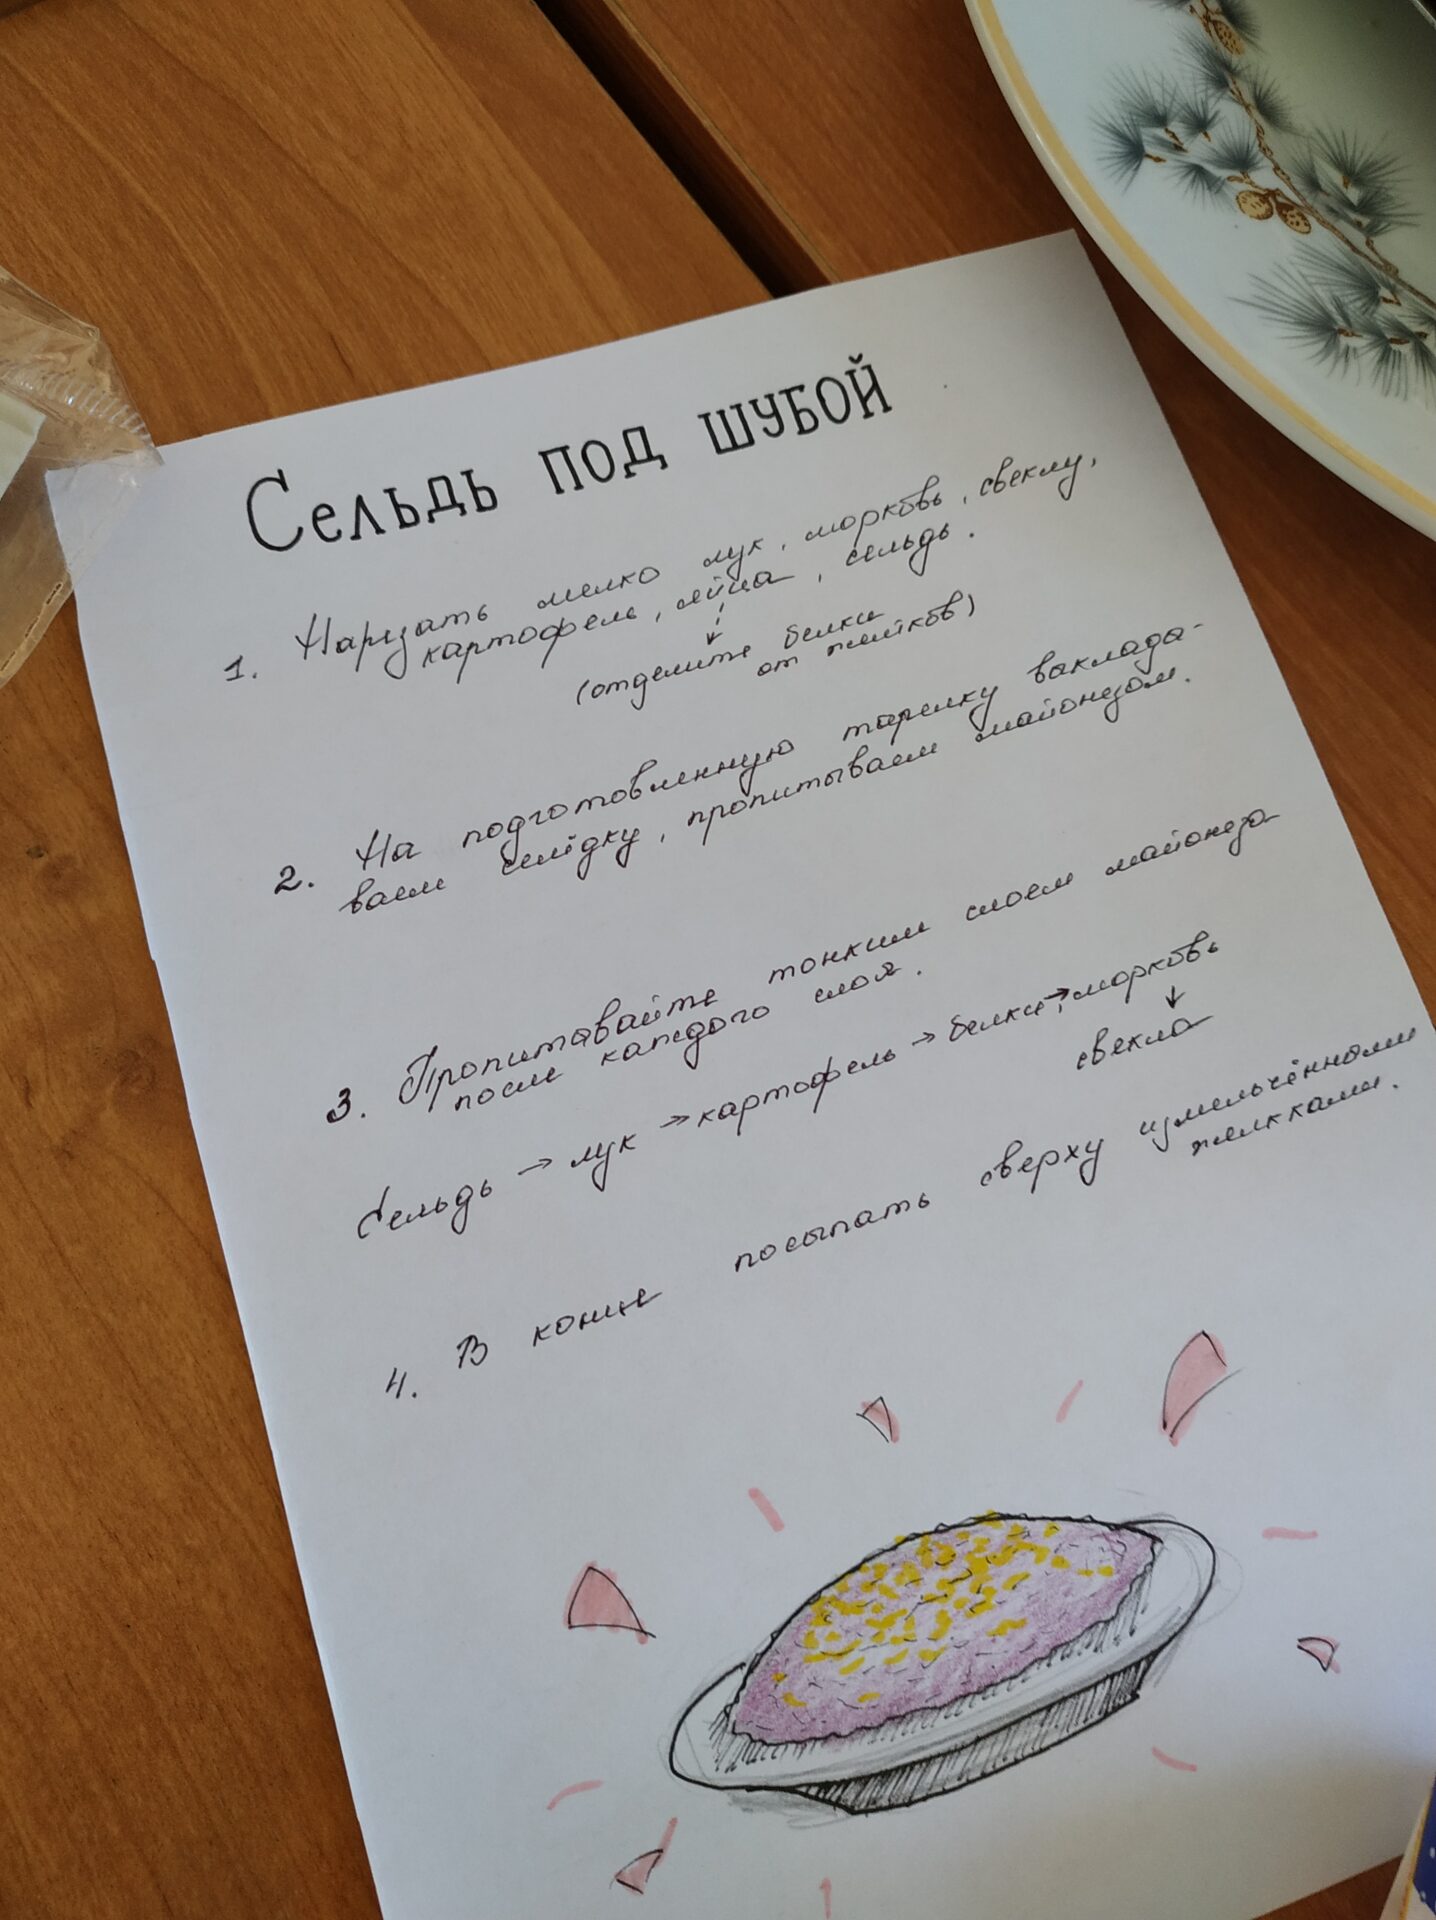 Сельдь под шубой
1. Нарезать мелко лук, морковь, свеклу,
картофель, яйца, сельдь.
(отделите белки
от желтков)
2. На подготовленную тарелку выклады-
ваем селёдку, пропитываем майонезом.
3. Пропитывайте тонким слоем майонеза
после каждого слоя.
Сельдь → лук → картофель → белки → морковь
↓
свекла
4. В конце посыпать сверху измельчёнными
желтками.